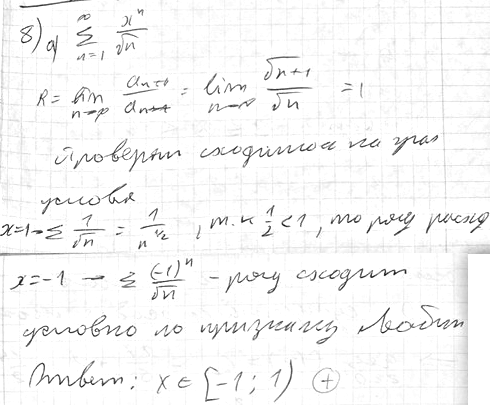 8) а) ∑_{n=1}^{∞} x^n/√n
R = lim_{n→∞} = lim_{n→∞} √(n+1)/√n = 1
Проверим сходимость на
условия
x=1→∑ 1/√n = 1/n^{1/2}, т.к 1/2<1, то ряд расход
x=-1 → ∑ (-1)^n/√n - ряд сходит
условно по признаку Лейбн
Ответ: x∈[-1; 1) +